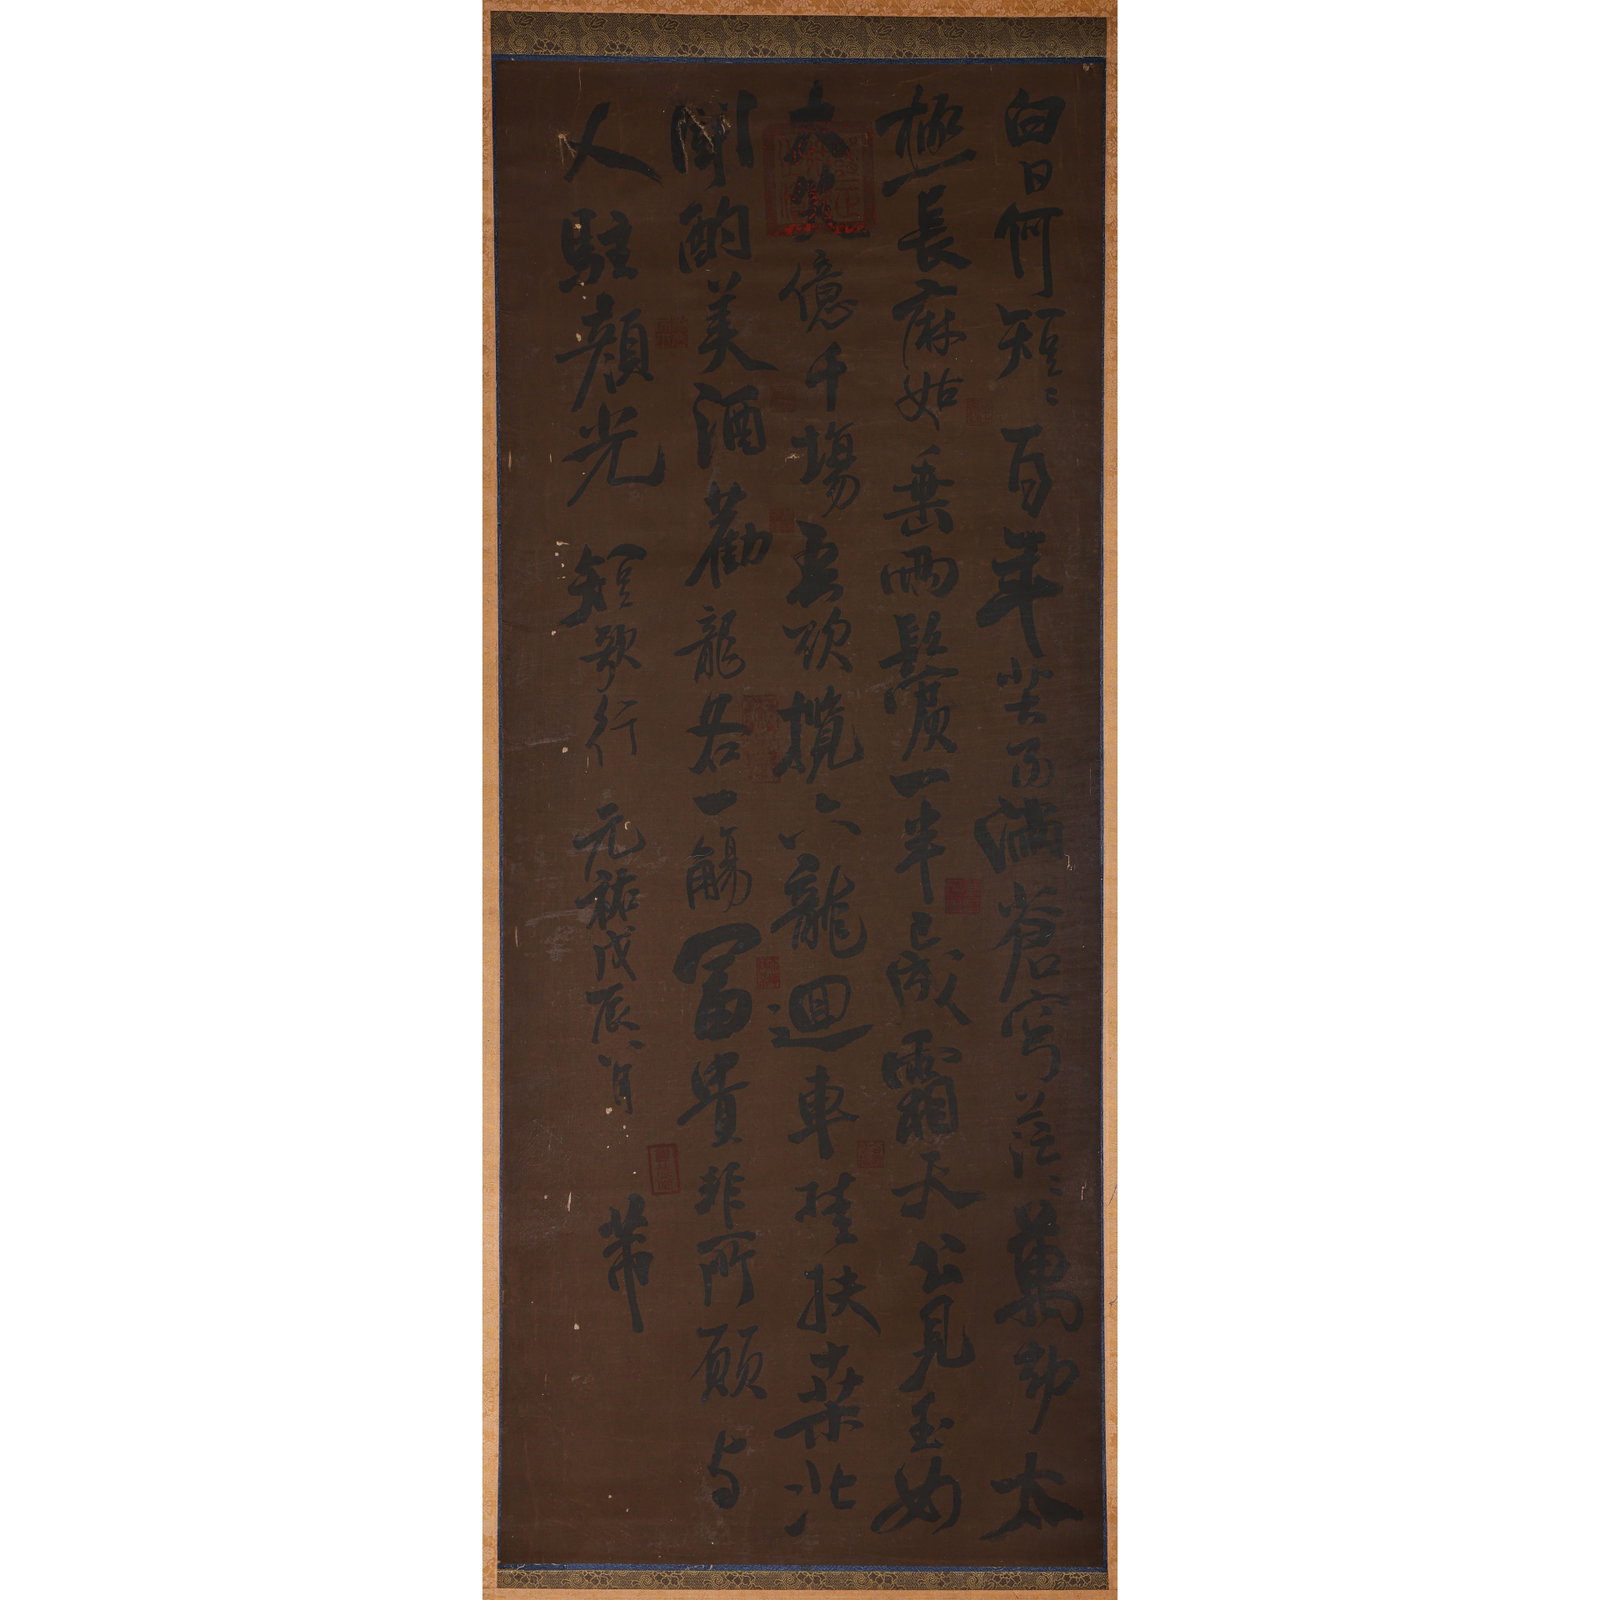 白日何短〻百年苦易滿蒼穹茫〻萬劫太
極長麻姑垂兩鬢一半已成霜天公見玉女
大笑億千場吾欲攬六龍迴車挂扶桒北
斗酌美酒勸龍各一觴富貴非所願与
人駐顏光 短歌行 元祐戊辰八月 芾